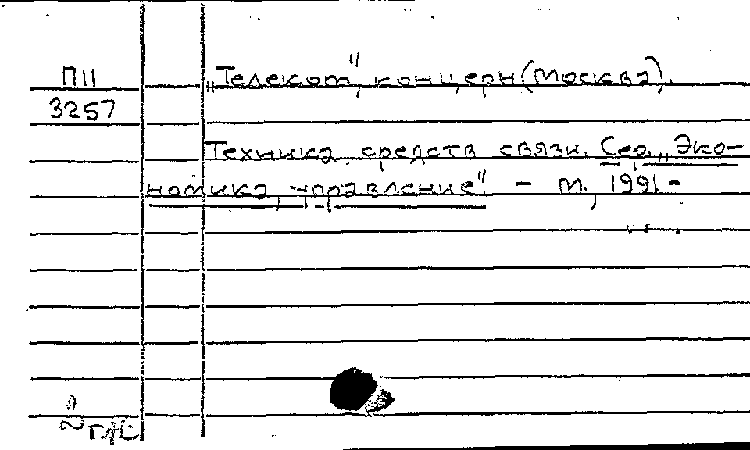 П11
3257
„Телеком", концерн (Москва).
Техника средств связи. Сер. „Эко-
номика, управление" - М., 1991-